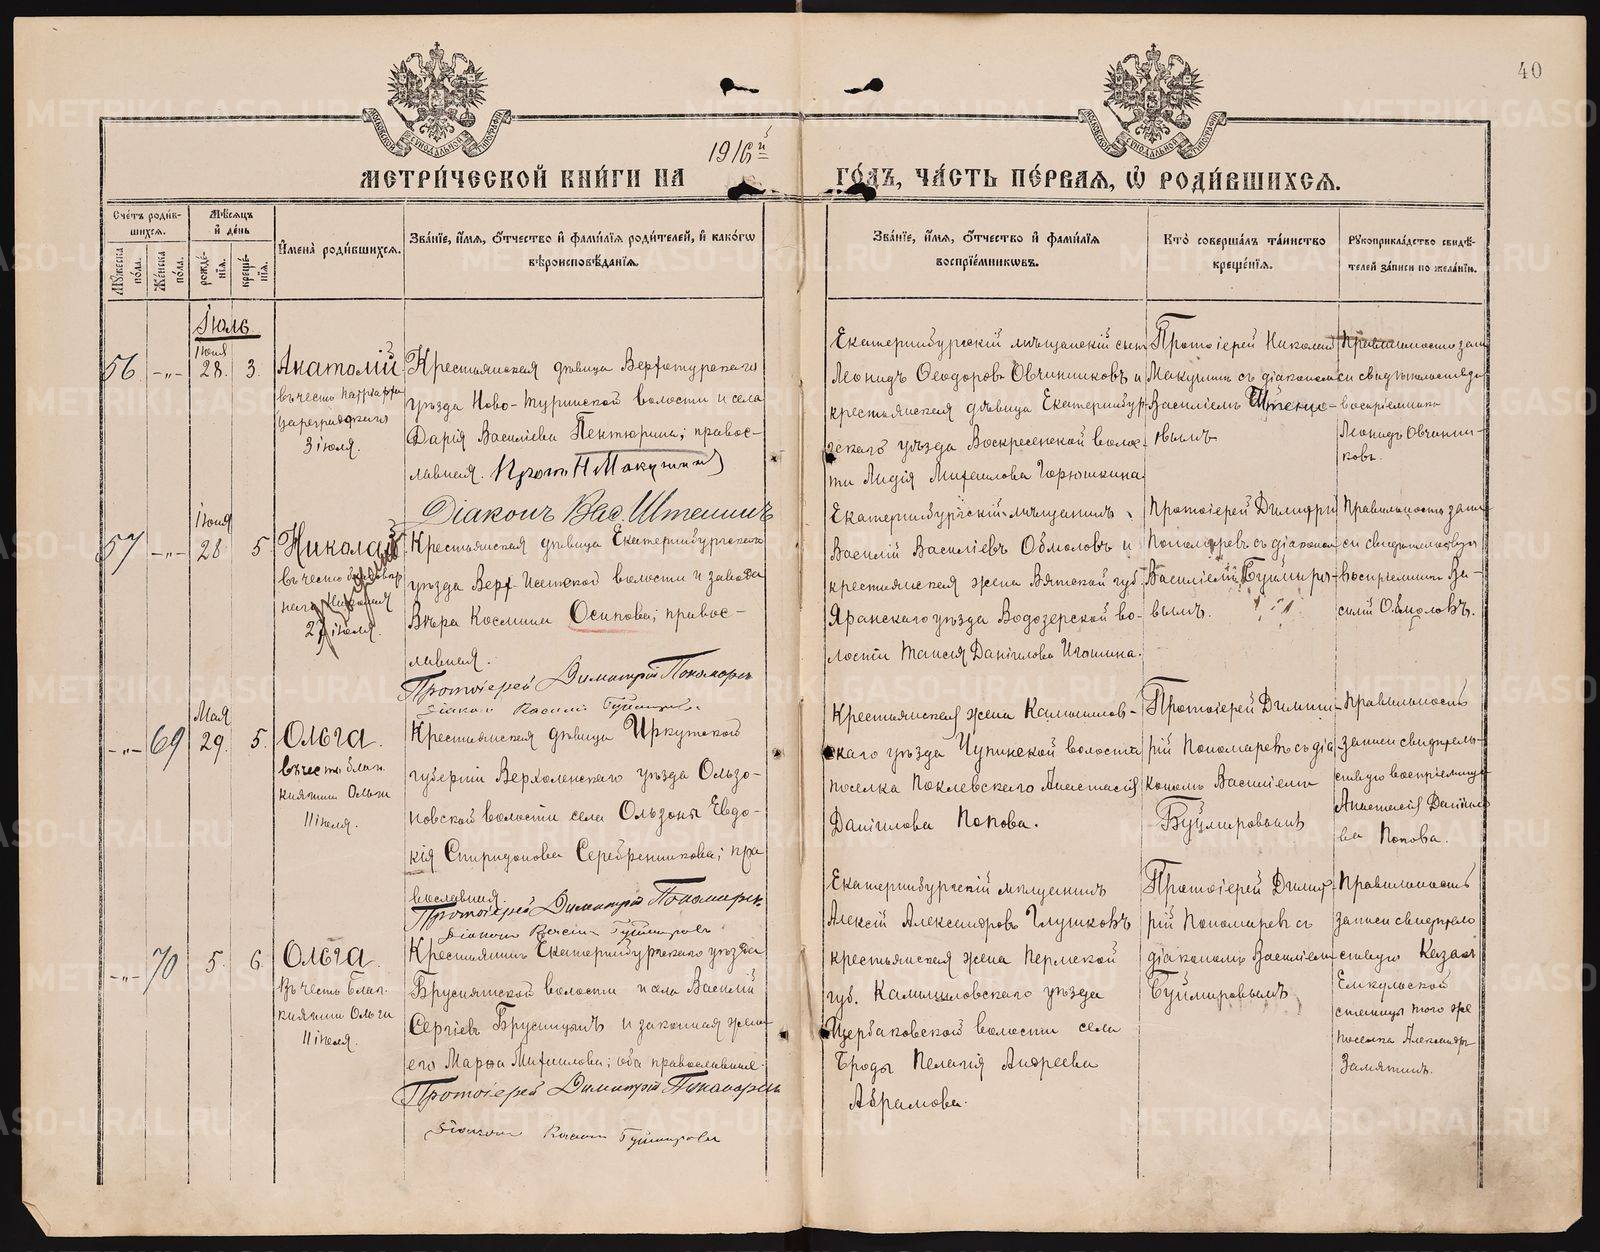 40
1916й
МЕТРИ́ЧЕСКОЙ КНИ́ГИ НА
ГО́ДЪ, ЧА́СТЬ ПЕ́РВАЯ, Ѡ҆ РОДИ́ВШИХСЯ.
Сче́тъ роди́в-
шихся.
Мꙋ́жеска по́ла.
Же́нска по́ла.
Мѣ́сяцъ
и҆ де́нь
рожде́-
нїя.
креще́-
нїя.
И҆мена̀ роди́вшихся.
Зва́нїе, и҆́мя, ѻ҆́тчество и҆ фами́лїя роди́телей, и҆ како́гѡ
вѣроисповѣ́данїя.
Зва́нїе, и҆́мя, ѻ҆́тчество и҆ фами́лїя
воспрїе́мникѡвъ.
Кто̀ соверша́лъ та́инство
креще́нїя.
Рꙋкоприкла́дство свидѣ́-
телей за́писи по жела́нїю.
Іюль.
56
-„-
Іюня
28.
3.
Анатолій
въ честь патріарха
Цареградскаго
3 іюля.
Крестьянская дѣвица Верхотурскаго
уѣзда Ново-Туринской волости и села
Дарія Василіева Пентюрина; правос-
лавная. Прот. Н Макушинъ
Діаконъ Вас. Штенновъ
Екатеринбургскій мѣщанскій сынъ
Леонидъ Ѳеодоровъ Овчинниковъ и
крестьянская дѣвица Екатеринбур-
гскаго уѣзда Воскресенской волос-
ти Лидія Михаилова Горюшкина
Протоіерей Николай
Макушинъ съ діакономъ
Василіемъ
вымъ
Правильность запи
си свидѣтельствую
воспріемникъ
Леонидъ Овчинни-
ковъ.
57
-„-
Іюня
28
5
Николай
въ честь
27 іюля.
Крестьянская дѣвица Екатеринбургскаго
уѣзда Верх-Исетской волости и завода
Вѣра Космина Осипова; правос-
лавная.
Протоіерей Димитрій Пономаревъ
Діаконъ Василій Буймировъ
Екатеринбургскій мѣщанинъ
Василій Василіевъ Обмоловъ и
крестьянская жена Вятской губ.
Яранскаго уѣзда Водозерской во-
лости Таисія Даніилова Игошина.
Протоіерей Димитрій
Пономаревъ съ діаконом
Василіемъ Буймиро-
вымъ.
Правильность запи
си свидѣтельствую
воспріемникъ Ва-
силій Обмоловъ.
-„-
69
Мая
29.
5.
Ольга.
въ честь благ.
княгини Ольги
11 іюля.
Крестьянская дѣвица Иркутской
губерніи Верхоленскаго уѣзда Ользо-
новской волости села Ользоны Евдо-
кія Спиридонова Серебренникова; пра
вославная.
Протоіерей Димитрій Пономаревъ.
Діаконъ Василій Буймировъ
Крестьянская жена Камышлов-
скаго уѣзда Чупинской волости
поселка Поклевскаго Анастасія
Даніилова Попова.
Протоіерей Димит-
рій Пономаревъ съ діа
кономъ Василіемъ
Буймировымъ
Правильность
записи свидѣтель-
ствую воспріемница
Анастасія Данiило
ва Попова.
-„-
70
5.
6.
Ольга
Въ честь благ.
княгини Ольги
11 іюля.
Крестьянинъ Екатеринбургскаго уѣзда
Бруснятской волости и села Василій
Сергіевъ Брусницынъ и законная жена
его Марѳа Михаилова; оба православные.
Протоіерей Димитрій Пономаревъ
Діаконъ Василій Буймировъ
Екатеринбургскій мѣщанинъ
Алексій Александровъ Глушковъ
крестьянская жена Пермской
губ. Камышловскаго уѣзда
Щербаковской волости села
Броды Пелагія Андреева
Абрамова.
Протоіерей Димит-
рій Пономаревъ съ
діакономъ Василіемъ
Буймировымъ
Правильность
записи свидѣтель
ствую Казакъ
Еткульской
станицы того же
поселка Александръ
Замятинъ.
METRIKI.GASO-URAL.RU